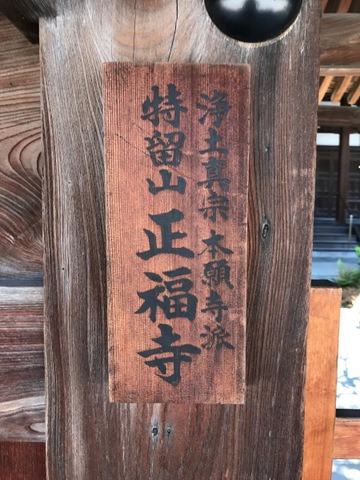 浄土真宗 本願寺派
特留山 正福寺